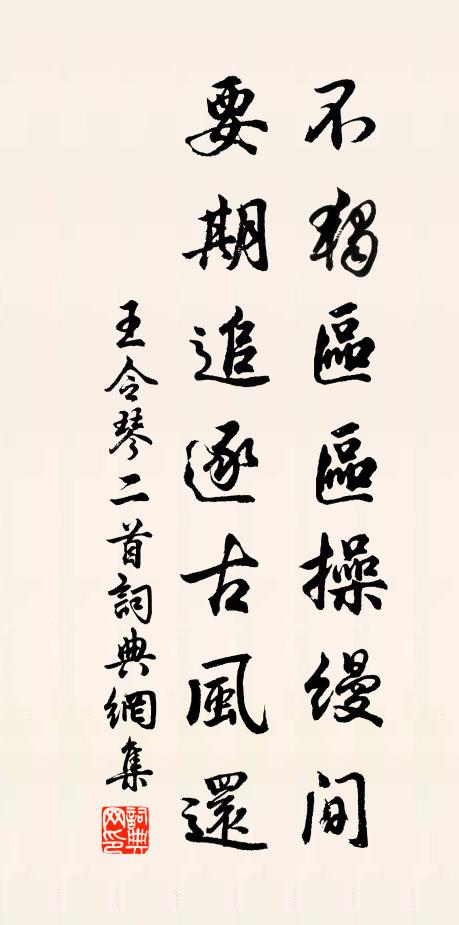 不獨區區操縵間
要期追逐古風還
王令琴二首詞典網集
詞典網印